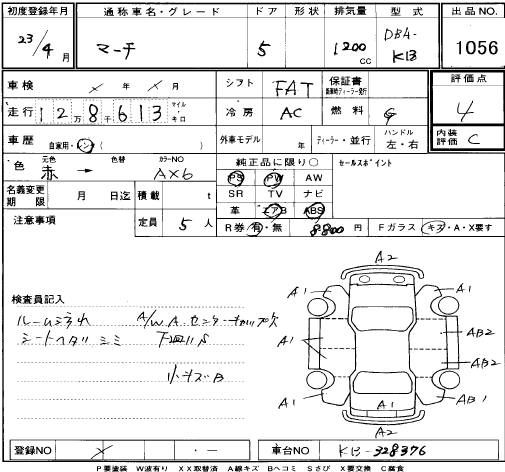 初度登録年月 通称車名・グレード ドア 形状 排気量 型式 出品NO.
23/4月 マーチ 5 1200cc DBA-K13 1056
車検 × 年 × 月 シフト FAT 保証書 新車時ディーラー発行 評価点
走行 12万8千613 マイル キロ 冷房 AC 燃料 G 4
車歴 自家用・レンタ( ) 外車モデル 年 ディーラー・並行 ハンドル 左・右 内装評価 C
色 元色 赤 → 色替 カラーNO AX6 純正品に限り○ セールスポイント
PS PW AW
名義変更期限 月 日迄 積載 t SR TV ナビ
革 エアB ABS
注意事項 定員 5人 R券 有・無 8800円 Fガラス キズ・A・X要す
A2
検査員記入 A1 A1
ルーム汚れ A/W.A.センターキャップ欠
シートヘタリ シミ 下回りS
A1 AB2
AB2
小キズB
A1 A1 AB1
A2
登録NO × ・ー 車台NO K13-328376
P要塗装 W波有り XX取替済 A線キズ Bヘコミ Sさび X要交換 C腐食